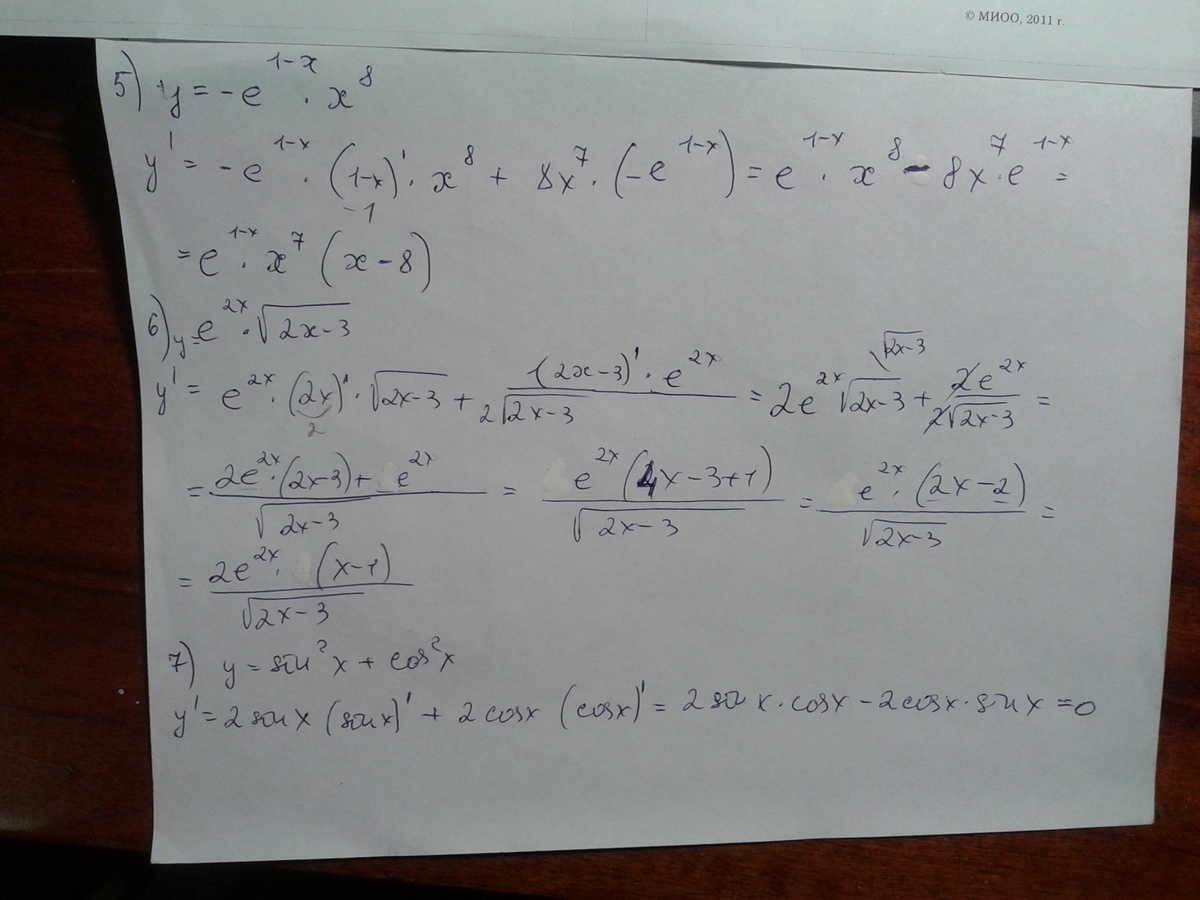 © МИОО, 2011 г.
5) y = -e^{1-x} · x^8
y' = -e^{1-x} · (1-x)' · x^8 + 8x^7 · (-e^{1-x}) = e^{1-x} · x^8 - 8x^7 · e^{1-x} =
-1
= e^{1-x} · x^7 (x-8)
6) y = e^{2x} · √(2x-3)
y' = e^{2x} · (2x)' · √(2x-3) + 1(2x-3)' · e^{2x} / 2√(2x-3) = 2e^{2x} √(2x-3) + 2e^{2x} / 2√(2x-3) =
√(2x-3)
2
= 2e^{2x} · (2x-3) + e^{2x} / √(2x-3) = e^{2x} (4x-3+1) / √(2x-3) = e^{2x} · (2x-2) / √(2x-3) =
= 2e^{2x} · (x-1) / √(2x-3)
7) y = sin^2 x + cos^2 x
y' = 2 sin x (sin x)' + 2 cos x (cos x)' = 2 sin x · cos x - 2 cos x · sin x = 0